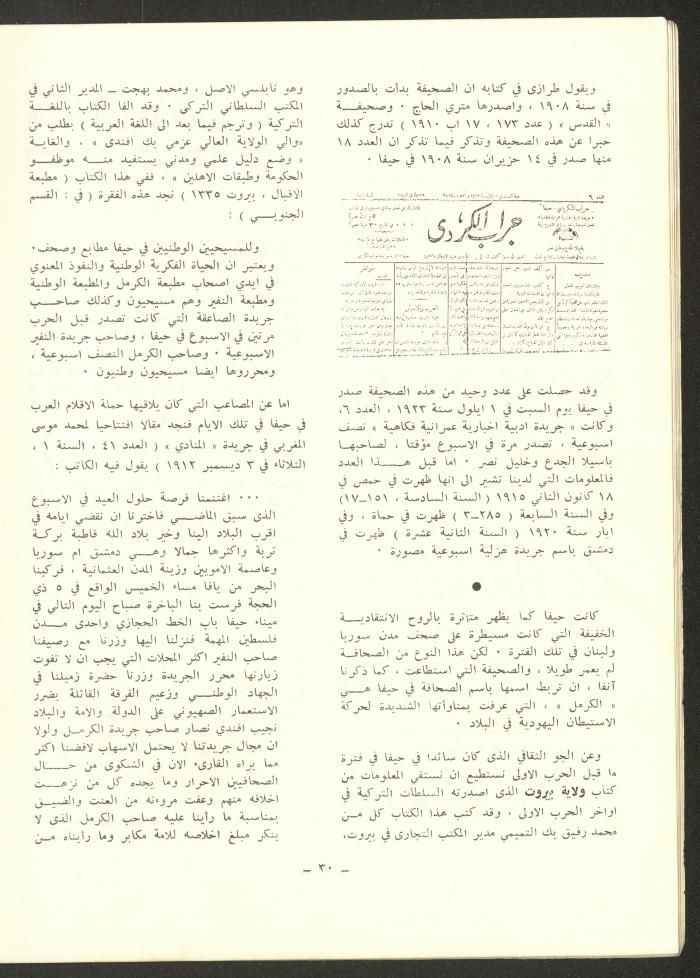 ويقول طرازى في كتابه ان الصحيفة بدأت بالصدور
في سنة ١٩٠٨ ، واصدرها متري الحاج ٠ وصحيفــة
« القدس » ( عدد ١٧٣ ، ١٧ اب ١٩١٠ ) تدرج كذلك
خبرا عن هذه الصحيفة وتذكر فيما تذكر ان العدد ١٨
منها صدر في ١٤ حزيران سنة ١٩٠٨ في حيفا ٠
العدد ٦
جراب الكردي
وقد حصلت على عدد وحيد من هذه الصحيفة صدر
في حيفا يوم السبت في ١ ايلول سنة ١٩٢٣ ، العدد ٦.
وكانت « جريدة ادبية اخبارية عمرانية فكاهية » نصف
اسبوعية ، تصدر مرة في الاسبوع مؤقتا ، لصاحبها
باسيلا الجدع وخليل نصر ٠ اما قبل هــــذا العدد
فالمعلومات التي لدينا تشير الى انها ظهرت في حمص في
١٨ كانون الثاني ١٩١٥ ( السنة السادسة ، ١٥١-١٧)
وفي السنة السابعة ( ٢٨٥-٣ ) ظهرت في حماة ، وفي
ايار سنة ١٩٢٠ ( السنة الثانية عشرة ) ظهرت في
دمشق باسم جريدة هزلية اسبوعية مصورة ٠
●
كانت حيفا كما يظهر متاثرة بالروح الانتقاديــــة
الخفيفة التي كانت مسيطرة على صحف مدن سوريا
ولبنان في تلك الفترة ٠ لكن هذا النوع من الصحافــة
لم يعمر طويلا ، والصحيفة التي استطاعت ، كما ذكرنا
آنفا ، ان تربط اسمها باسم الصحافة في حيفا هــــي
« الكرمل » ، التي عرفت بمناوأتها الشديدة لحركة
الاستيطان اليهودية في البلاد ٠
وعن الجو الثقافي الذى كان سائدا في حيفا في فترة
ما قبل الحرب الاولى نستطيع ان نستقي المعلومات من
كتاب ولاية بيروت الذى اصدرته السلطات التركية في
اواخر الحرب الاولى ، وقد كتب هذا الكتاب كل مــن
محمد رفيق بك التميمي مدير المكتب التجارى في بيروت،
وهو نابلسي الاصل ، ومحمد بهجت ــ المدير الثاني في
المكتب السلطاني التركي ٠ وقد الفا الكتاب باللغــــة
التركية ( وترجم فيما بعد الى اللغة العربية ) بطلب من
«والي الولاية العالي عزمي بك افندى » ، والغايــة
« وضع دليل علمي ومدني يستفيد منــــه موظفــو
الحكومة وطبقات الاهلين » ، ففي هذا الكتاب ( مطبعة
الاقبال ، بيروت ١٣٣٥ ) نجد هذه الفقرة ( في : القسم
الجنوبــي ) :
وللمسيحيين الوطنيين في حيفا مطابع وصحف٠
ويعتبر ان الحياة الفكرية الوطنية والنفوذ المعنوي
في ايدي اصحاب مطبعة الكرمل والمطبعة الوطنية
ومطبعة النفير وهم مسيحيون وكذلك صاحــب
جريدة الصاعقة التي كانت تصدر قبل الحرب
مرتين في الاسبوع في حيفا ، وصاحب جريدة النفير
الاسبوعية ٠ وصاحب الكرمل النصف اسبوعية ،
ومحرروها ايضا مسيحيون وطنيون ٠
اما عن المصاعب التي كان يلاقيها حملة الاقلام العرب
في حيفا في تلك الايام فنجد مقالا افتتاحيا لمحمد موسى
المغربي في جريدة « المنادي » ( العدد ٤١ ، السنة ١ ،
الثلاثاء في ٣ ديسمبر ١٩١٢ ) يقول فيه الكاتب :
٠٠٠ اغتنمنا فرصة حلول العيد في الاسبوع
الذى سبق الماضــــي فاخترنا ان نقضي ايامه في
اقرب البلاد الينا وخير بلاد الله قاطبة بركــة
تربة واكثرها جمالا وهــــي دمشق ام سوريا
وعاصمة الامويين وزينة المدن العثمانية ، فركبنا
البحر من يافا مساء الخميس الواقع في ٥ ذي
الحجة فرست بنا الباخرة صباح اليوم التالي في
ميناء حيفا باب الخط الحجازي واحدى مـــدن
فلسطين المهمة فنزلنا اليها وزرنا مع رصيفنا
صاحب النفير اكثر المحلات التي يجب ان لا تفوت
زيارتها محرر الجريدة وزرنا حضرة زميلنا في
الجهاد الوطنــــي وزعيم الفرقة القائلة بضرر
الاستعمار الصهيوني على الدولة والامة والبلاد
نجيب افندي نصار صاحب جريدة الكرمـل ولولا
ان مجال جريدتنا لا يحتمل الاسهاب لافضنا اكثر
مما يراه القارىء الان في الشكوى من حــــال
الصحافيين الاحرار وما يجده كل من نزهـــت
اخلاقه منهم وعفت مروءته من العنت والضيــق
بمناسبة ما رأينا عليه صاحب الكرمل الذى لا
ينكر مبلغ اخلاصه للامة مكابر وما رأيناه مــن
ــ ٣٠ ــ